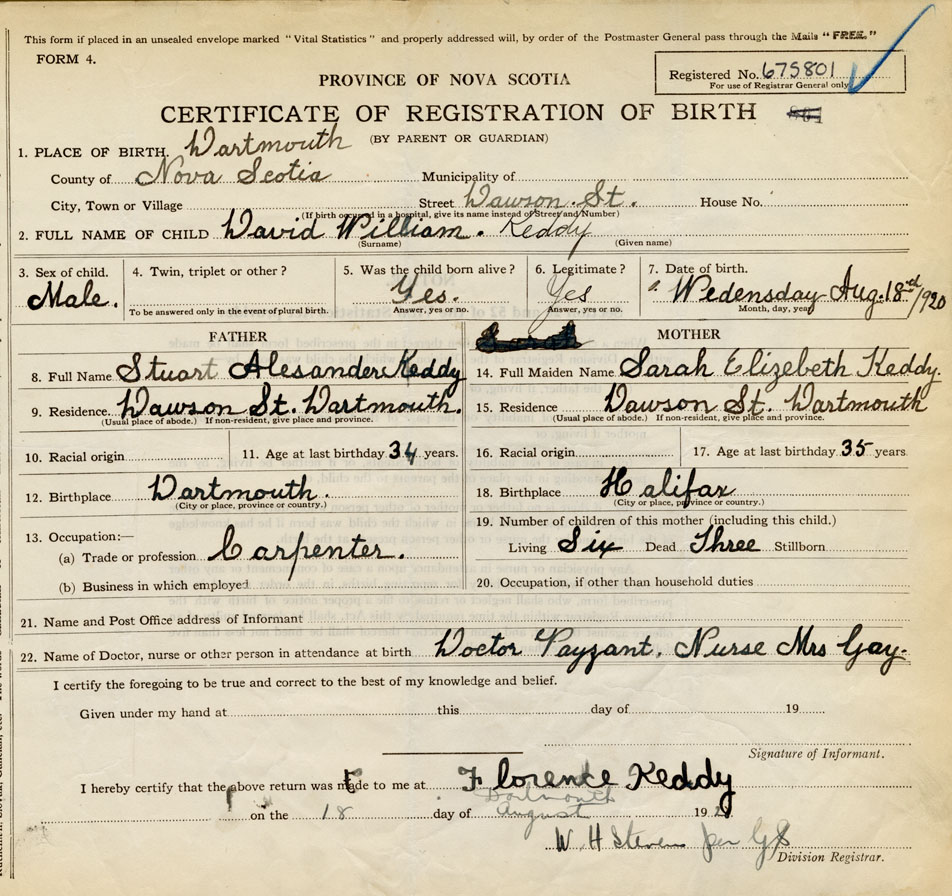 This form if placed in an unsealed envelope marked "Vital Statistics" and properly addressed will, by order of the Postmaster General pass through the Mails "FREE."
FORM 4.
Registered No. 675801
For use of Registrar General only
PROVINCE OF NOVA SCOTIA
CERTIFICATE OF REGISTRATION OF BIRTH
(BY PARENT OR GUARDIAN)
1. PLACE OF BIRTH. Dartmouth
County of Nova Scotia Municipality of
City, Town or Village Street Dawson St. House No.
(If birth occurred in a hospital, give its name instead of Street and Number)
2. FULL NAME OF CHILD David William. Keddy
(Surname) (Given name)
3. Sex of child. 4. Twin, triplet or other? 5. Was the child born alive? 6. Legitimate? 7. Date of birth.
Male. Yes. Yes Wedensday Aug. 18 /920
To be answered only in the event of plural birth. Answer, yes or no. Answer, yes or no. Month, day, year
FATHER MOTHER
8. Full Name Stuart Alesandere Keddy 14. Full Maiden Name Sarah Elizebeth Keddy.
9. Residence. Dawson St. Dartmouth. 15. Residence Dawson St. Dartmouth
(Usual place of abode.) If non-resident, give place and province. (Usual place of abode.) If non-resident, give place and province.
10. Racial origin 11. Age at last birthday 34 years. 16. Racial origin 17. Age at last birthday 35 years.
12. Birthplace Dartmouth. 18. Birthplace Halifax
(City or place, province or country.) (City or place, province or country.)
13. Occupation:— 19. Number of children of this mother (including this child.)
(a) Trade or profession Carpenter. Living Six Dead Three Stillborn
(b) Business in which employed 20. Occupation, if other than household duties
21. Name and Post Office address of Informant
22. Name of Doctor, nurse or other person in attendance at birth Doctor Payzant, Nurse Mrs Gay.
I certify the foregoing to be true and correct to the best of my knowledge and belief.
Given under my hand at this day of 19
Signature of Informant.
I hereby certify that the above return was made to me at Florence Keddy
Dartmouth
on the 18 day of August 192
W. H Stevens per GS
Division Registrar.